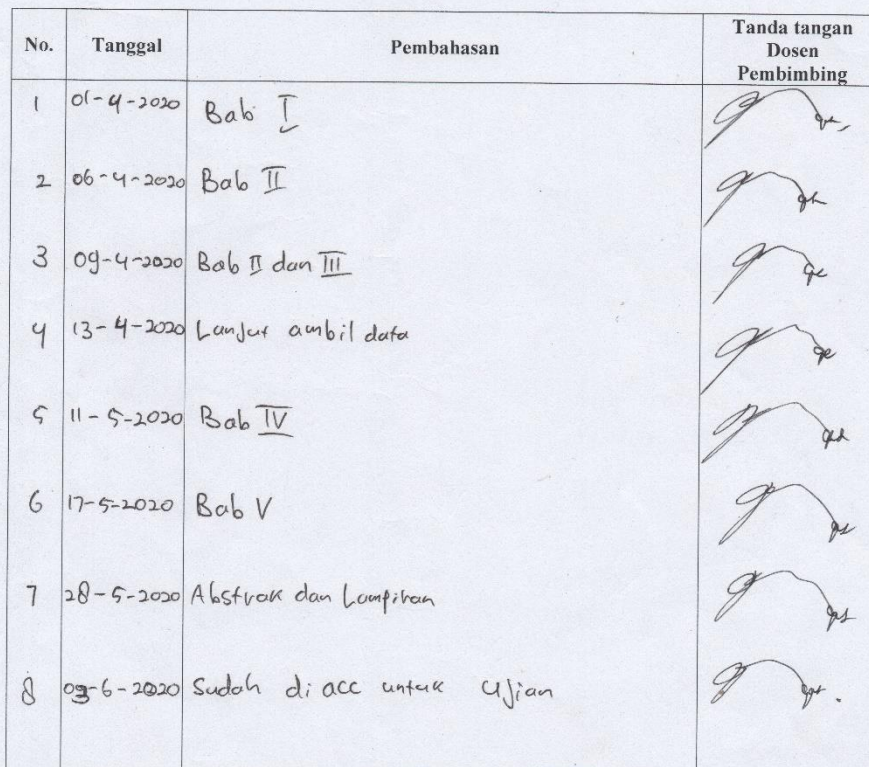 No. Tanggal Pembahasan Tanda tangan
Dosen
Pembimbing
1 01-4-2020 Bab I
2 06-4-2020 Bab II
3 09-4-2020 Bab II dan III
4 13-4-2020 Lanjut ambil data
5 11-5-2020 Bab IV
6 17-5-2020 Bab V
7 28-5-2020 Abstrak dan Lampiran
8 03-6-2020 Sudah di acc untuk Ujian